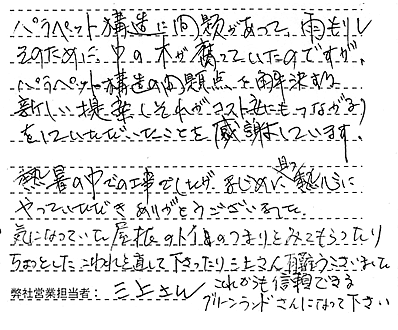 パラペット構造に問題があって、雨もりし
そのために中の木が腐っていたのですが、
パラペット構造の問題点を解決する
新しい提案（それがコスト低にもつながる）
をしていただいたことを感謝しています。
熱暑の中での工事でしたが、まじめに且つ熱心に
やっていただきありがとうございました。
気になっていた屋根のトイのつまりとみてもらったり
ちょっとしたこわれを直して下さったり三上さん有難うございました
弊社営業担当者： 三上さん これからも信頼できる
グリーンランドさんになって下さい